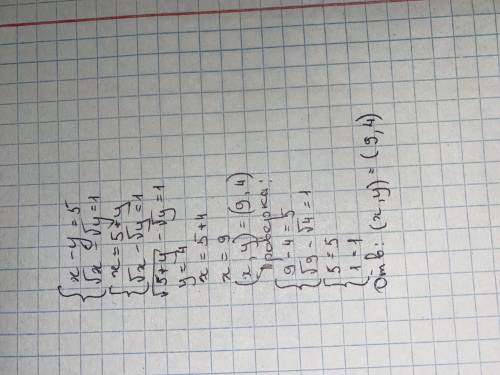 { x - y = 5
{ √x - √y = 1
{ x = 5 + y
{ √x - √y = 1
√5+y - √y = 1
y = 4
x = 5 + 4
x = 9
(x, y) = (9, 4)
Проверка:
{ 9 - 4 = 5
{ √9 - √4 = 1
{ 5 = 5
{ 1 = 1
Отв: (x, y) = (9, 4)